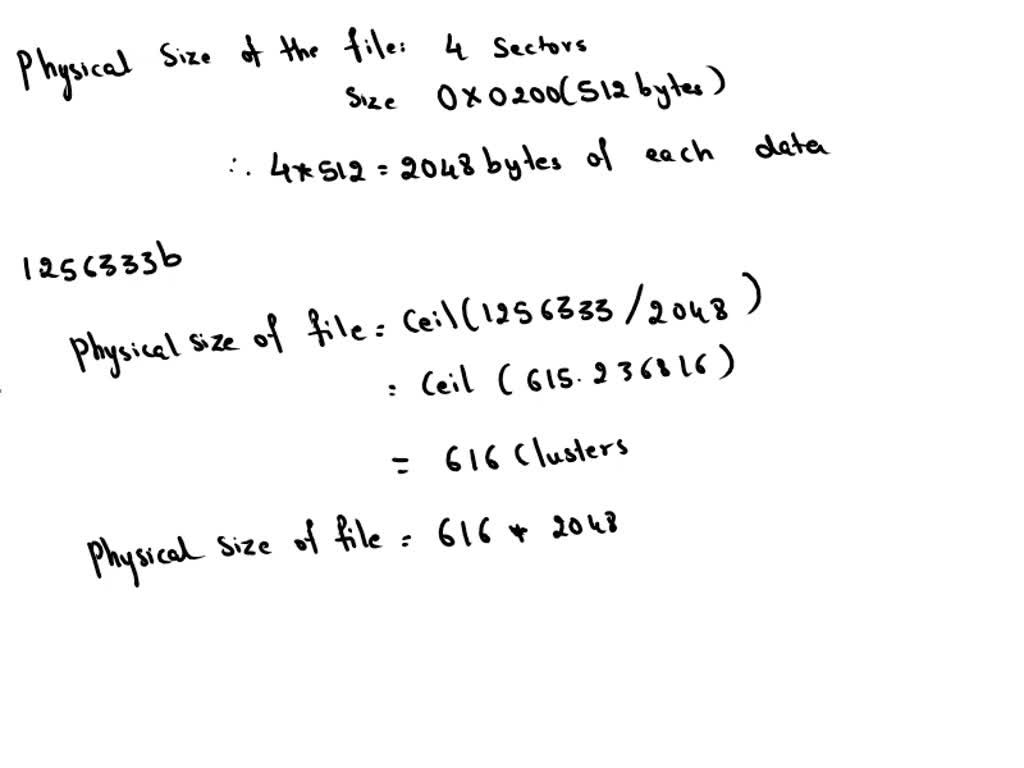 Physical Size of the file: 4 Sectors
Size 0x0200(512 bytes)
∴ 4*512 = 2048 bytes of each data
1256333b
Physical size of file = Ceil(1256333/2048)
= Ceil (615.236816)
= 616 Clusters
Physical Size of file = 616 * 2048